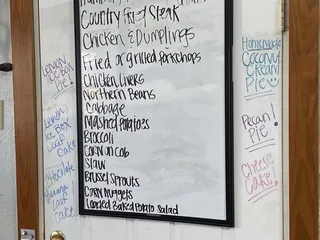 Country Fried Steak
Chicken & Dumplings
Fried or grilled porkchops
Chicken Livers
Northern Beans
Cabbage
Mashed Potatoes
Broccoli
Corn on cob
Slaw
Brussel Sprouts
Corn Nuggets
Loaded Baked Potato Salad
Lemon
Box
Pie!
Lemon
Ice Box
Loaf
Cake
Chocolate
Loaf
Cake
Homemade
Coconut
Cream
Pie
Pecan
Pie!
Cheese
Cake!